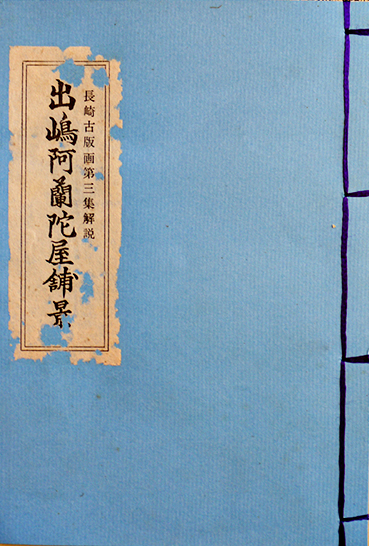 長崎古版画第三集解説
出嶋阿蘭陀屋舗景